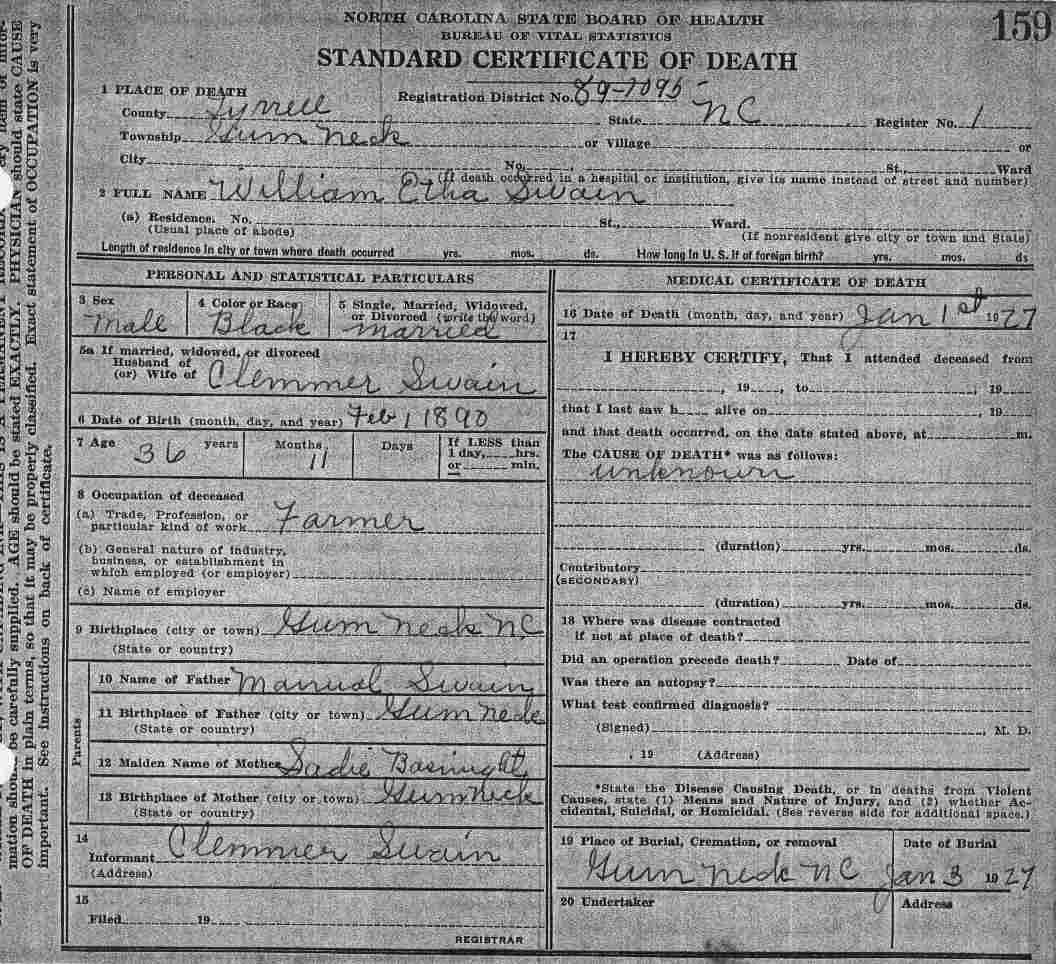 NORTH CAROLINA STATE BOARD OF HEALTH
BUREAU OF VITAL STATISTICS
159
STANDARD CERTIFICATE OF DEATH
1 PLACE OF DEATH
Registration District No. 89-7095
County Tyrrell State NC Register No. 1
Township Gum Neck or Village or
City No. St., Ward
(If death occurred in a hospital or institution, give its name instead of street and number)
2 FULL NAME William Etha Swain
(a) Residence. No. St., Ward.
(Usual place of abode) (If nonresident give city or town and State)
Length of residence in city or town where death occurred yrs. mos. ds. How long in U. S. if of foreign birth? yrs. mos. ds
PERSONAL AND STATISTICAL PARTICULARS
3 Sex
Mall
4 Color or Race
Black
5 Single, Married, Widowed,
or Divorced (write the word)
married
5a If married, widowed, or divorced
Husband of
(or) Wife of Clemmer Swain
6 Date of Birth (month, day, and year) Feb 1 1890
7 Age 36 years
Months
11
Days
If LESS than
1 day, hrs.
or min.
8 Occupation of deceased
(a) Trade, Profession, or
particular kind of work Farmer
(b) General nature of industry,
business, or establishment in
which employed (or employer)
(c) Name of employer
9 Birthplace (city or town) Gum Neck NC
(State or country)
Parents
10 Name of Father Manual Swain
11 Birthplace of Father (city or town) Gum Neck
(State or country)
12 Maiden Name of Mother Sadie Basnight
13 Birthplace of Mother (city or town) Gum Neck
(State or country)
14
Informant Clemmer Swain
(Address)
15
Filed 19
REGISTRAR
MEDICAL CERTIFICATE OF DEATH
16 Date of Death (month, day, and year) Jan 1st 1927
17
I HEREBY CERTIFY, That I attended deceased from
, 19 , to , 19
that I last saw h alive on , 19
and that death occurred, on the date stated above, at m.
The CAUSE OF DEATH* was as follows:
unknown
(duration) yrs. mos. ds.
Contributory
(SECONDARY)
(duration) yrs. mos. ds.
18 Where was disease contracted
if not at place of death?
Did an operation precede death? Date of
Was there an autopsy?
What test confirmed diagnosis?
(Signed) , M. D.
, 19 (Address)
*State the Disease Causing Death, or in deaths from Violent
Causes, state (1) Means and Nature of Injury, and (2) whether Ac-
cidental, Suicidal, or Homicidal. (See reverse side for additional space.)
19 Place of Burial, Cremation, or removal
Gum Neck NC
Date of Burial
Jan 3 1927
20 Undertaker
Address
mation should be carefully supplied. AGE should be stated EXACTLY. PHYSICIAN should state CAUSE
OF DEATH in plain terms, so that it may be properly classified. Exact statement of OCCUPATION is very
important. See instructions on back of certificate.